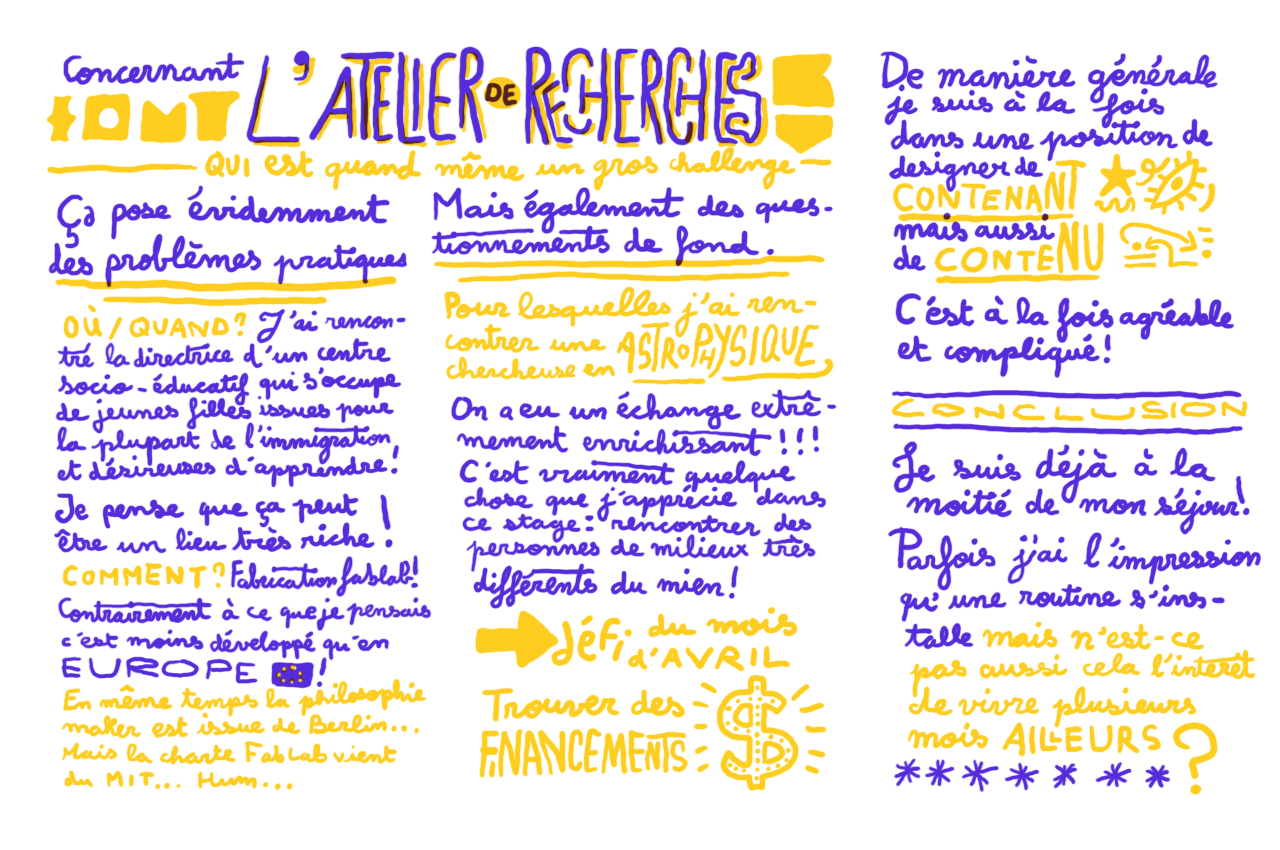 Concernant
L'ATELIER DE RECHERCHES
QUI est quand même un gros challenge
Ça pose évidemment
des problèmes pratiques
OÙ / QUAND? J'ai rencon-
tré la directrice d'un centre
socio-éducatif qui s'occupe
de jeunes filles issues pour
la plupart de l'immigration,
et désireuses d'apprendre!
Je pense que ça peut
être un lieu très riche!
COMMENT? Fabrication fablab!
Contrairement à ce que je pensais
c'est moins développé qu'en
EUROPE !
En même temps la philosophie
maker est issue de Berlin...
Mais la charte FabLab vient
du MIT... Hum...
Mais également des ques-
tionnements de fond.
Pour lesquelles j'ai ren-
contrer une ASTROPHYSIQUE,
chercheuse en
On a eu un échange extrê-
mement enrichissant!!!
C'est vraiment quelque
chose que j'apprécie dans
ce stage: rencontrer des
personnes de milieux très
différents du mien!
DéFi du mois
d'AVRIL
Trouver des
FINANCEMENTS $
De manière générale
je suis à la fois
dans une position de
designer de
CONTENANT
mais aussi
de CONTENU
C'est à la fois agréable
et compliqué!
CONCLUSION
Je suis déjà à la
moitié de mon séjour!
Parfois j'ai l'impression
qu'une routine s'ins-
talle mais n'est-ce
pas aussi cela l'interêt
de vivre plusieurs
mois AILLEURS ?
*******